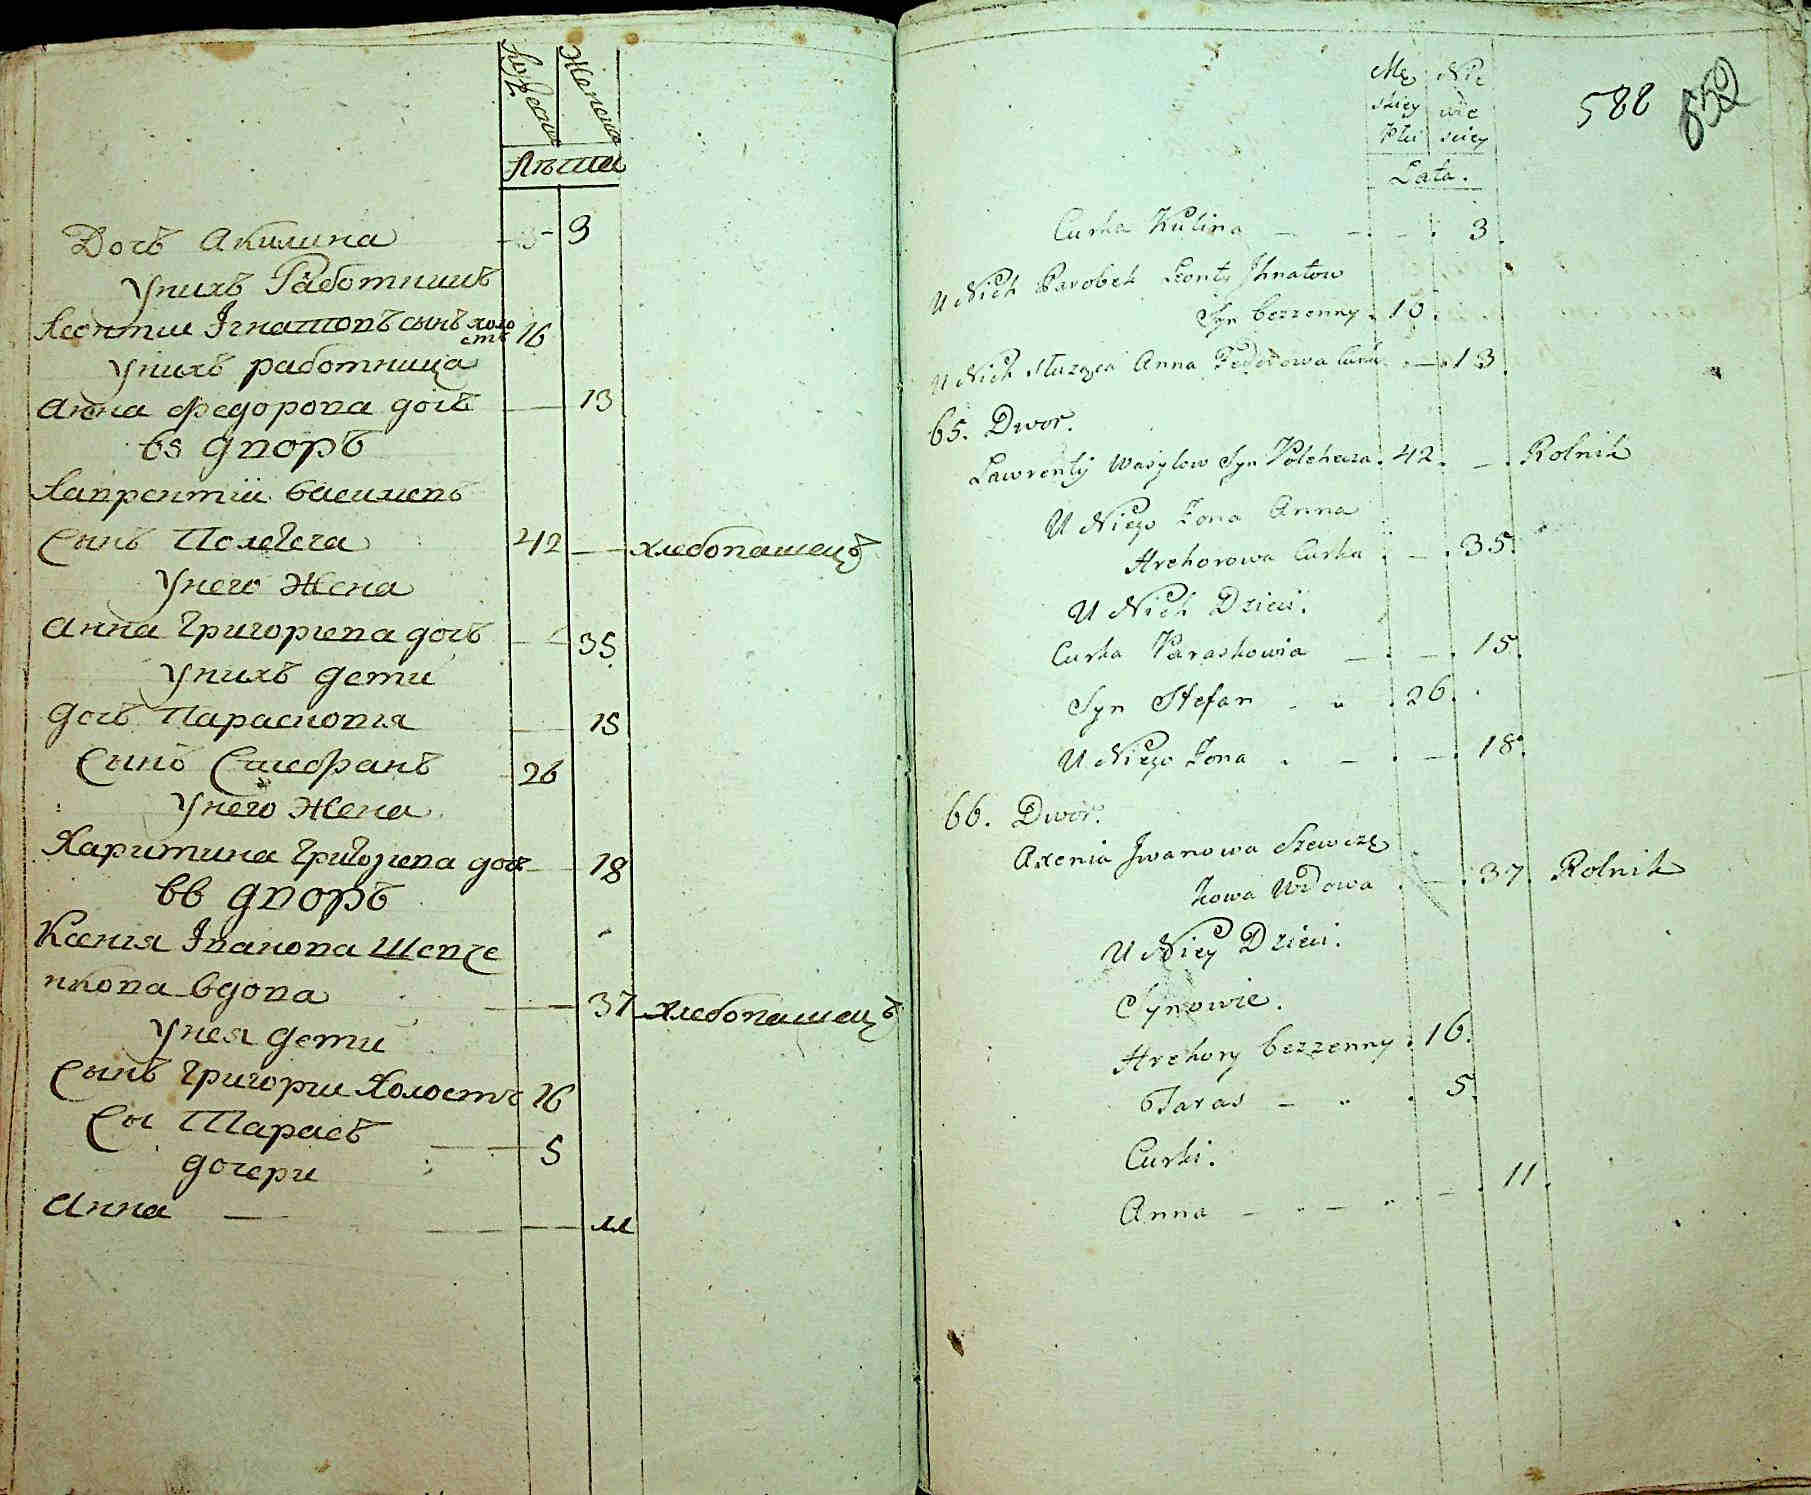 Мужеска
Женска
Лѣта
Дочъ Акилина 3
Унихъ Работникъ
Леонтии Iгнатовъ сынъ холо
стъ 16
Унихъ работница
Анна Федорова дочъ 13
65 дворъ
Лаврентiи василевъ
Сынъ Полегеча 42 хлебопашецъ
Унего Жена
Анна Григориева дочъ 35
Унихъ дети
дочъ Парасковiя 15
Сынъ Стефанъ 26
Унего Жена
Харитина Григориева дочъ 18
66 дворъ
Ксенiя Iванова Шевче
нкова вдова 37 хлебопашецъ
Унея дети
Сынъ Григории Холостъ 16
Сы Тарасъ 5
дочери
Анна 11
588
Mę Nie
skiey wie
Płci sciey
Lata.
Curka Kulina 3.
U Nich Parobek Leonty Jhnatow
Syn bezzenny. 16.
U Nich Służąca Anna Fedorowa Curka 13.
65. Dwor.
Lawrentÿ Wasylow Syn 42. Rolnik
U Niego Zona Anna
Hrehorowa Curka 35.
U Nich Dzieci.
Curka Paraskowia 15.
Syn Stefan 26.
U Niego Zona 18.
66. Dwor.
Axenia Jwanowa Szewczę
kowa Wdowa 37. Rolnik
U Niey Dzieci.
Synowie.
Hrehory bezzenny. 16.
Taras 5.
Curki.
Anna 11.